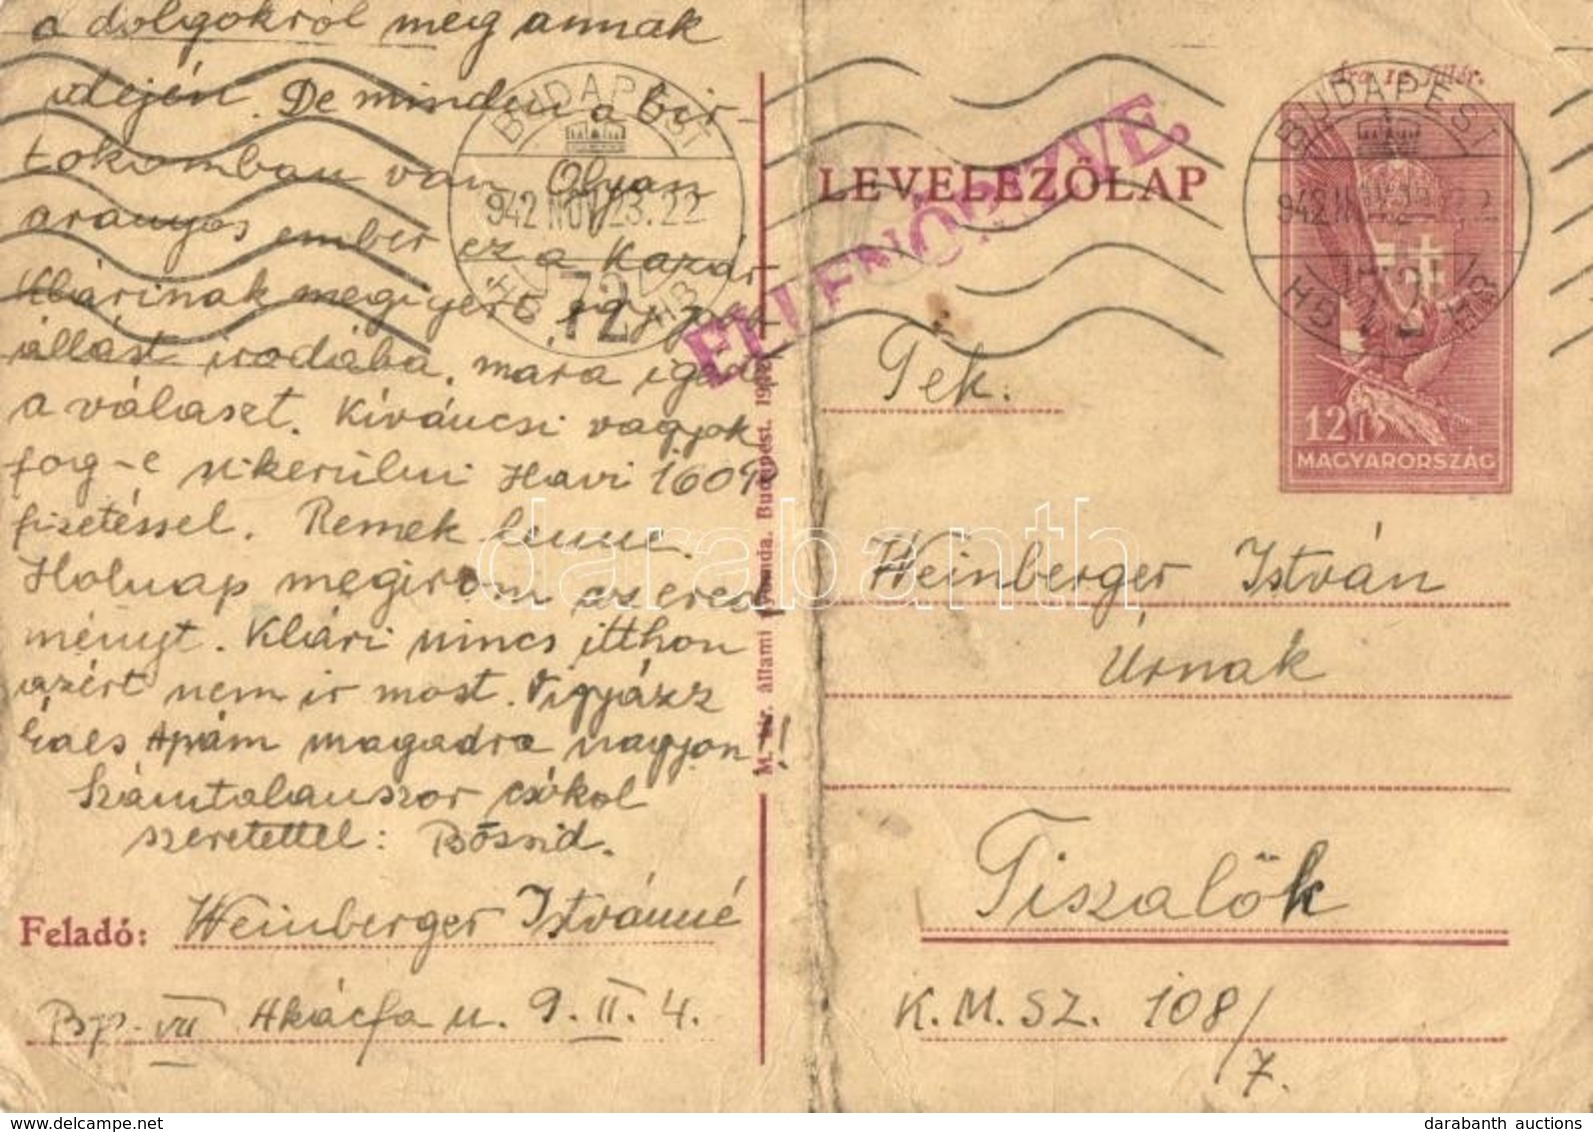 a dolgokról meg annak
idején. De minden a bir-
tokomban van. Olyan
aranyos ember ez a Kazár
Klárinak megigyért egy
állást irodába, mára igért
a választ. Kíváncsi vagyok
fog-e sikerülni Havi 160 P
fizetéssel. Remek lenne.
Holnap megirom az ered
ményt. Klári nincs itthon
azért nem ir most. Vigyázz
Édes Apám magadra nagyon!!
Számtalanszor csókol
szeretettel: Bözsid.
Feladó: Weinberger Istvánné
Bp. VII Akácfa u. 9. II. 4.
M. kir. állami nyomda. Budapest.
BUDAPEST
942 NOV 23. 22
72
ELLENŐRIZVE.
LEVELEZŐLAP
Ára 12 fillér.
BUDAPEST
942
12 f
MAGYARORSZÁG
Tek.
Weinberger István
Úrnak
Tiszalök
K. M. SZ. 108/
7.
darabanth
darabanth auctions